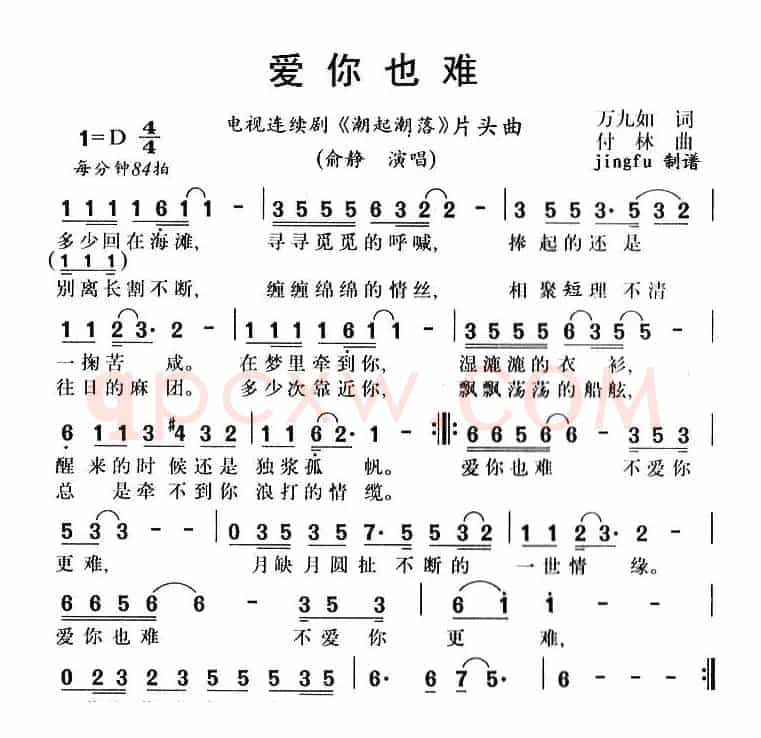 爱你也难
电视连续剧《潮起潮落》片头曲
(俞静 演唱)
万九如 词
付林 曲
jingfu 制谱
1=D 4/4
每分钟84拍
1 1 1 1 6 1 1 - | 3 5 5 5 6 3 2 2 - | 3 5 5 3· 5 3 2 |
多少回在海滩, 寻寻觅觅的呼喊, 捧起的还是
(1 1 1)
别离长割不断, 缠缠绵绵的情丝, 相聚短理不清
1 1 2 3· 2 - | 3 5 1 1 1 6 1 - | 3 5 5 5 6 3 5 5 - |
一掬苦咸。 在梦里牵到你, 湿漉漉的衣衫,
往日的麻团。 多少次靠近你, 飘飘荡荡的船舷,
6 1 1 3 #4 3 2 | 1 1 6 2· 1 - :||: 6 6 5 6 6 - 3 5 3 |
醒来的时候还是独浆孤帆。 爱你也难 不爱你
总是牵不到你浪打的情缆。
5 3 3 - - | 0 3 5 3 5 7· 5 5 3 2 | 1 1 2 3· 2 - |
更难, 月缺月圆扯不断的一世情缘。
6 6 5 6 6 - 3 5 3 | 6 1 1 - - |
爱你也难 不爱你更难,
0 2 3 2 3 5 3 2 3 5 | 6· 6 7 5· | 6 - - - :||
qpcxw.com